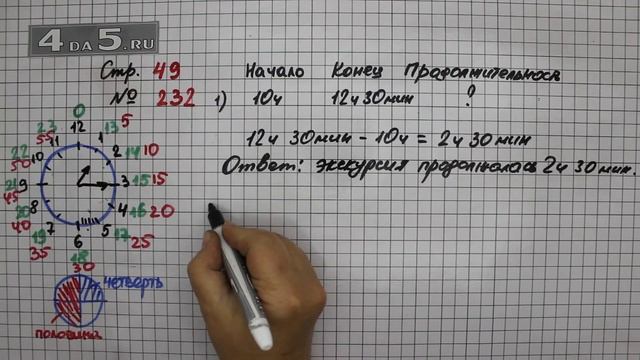 4DA5.RU
Стр. 49
№ 232
Начало Конец Продолжительность
1) 10ч 12ч 30мин ?
12ч 30мин - 10ч = 2ч 30мин
Ответ: экскурсия продолжалась 2ч 30мин.
0
12
23 55 11 1 13 5
22 50 10 2 14 10
21 45 9 3 15 15
20 40 8 4 16 20
19 35 7 5 17 25
6
18
30
четверть
половина